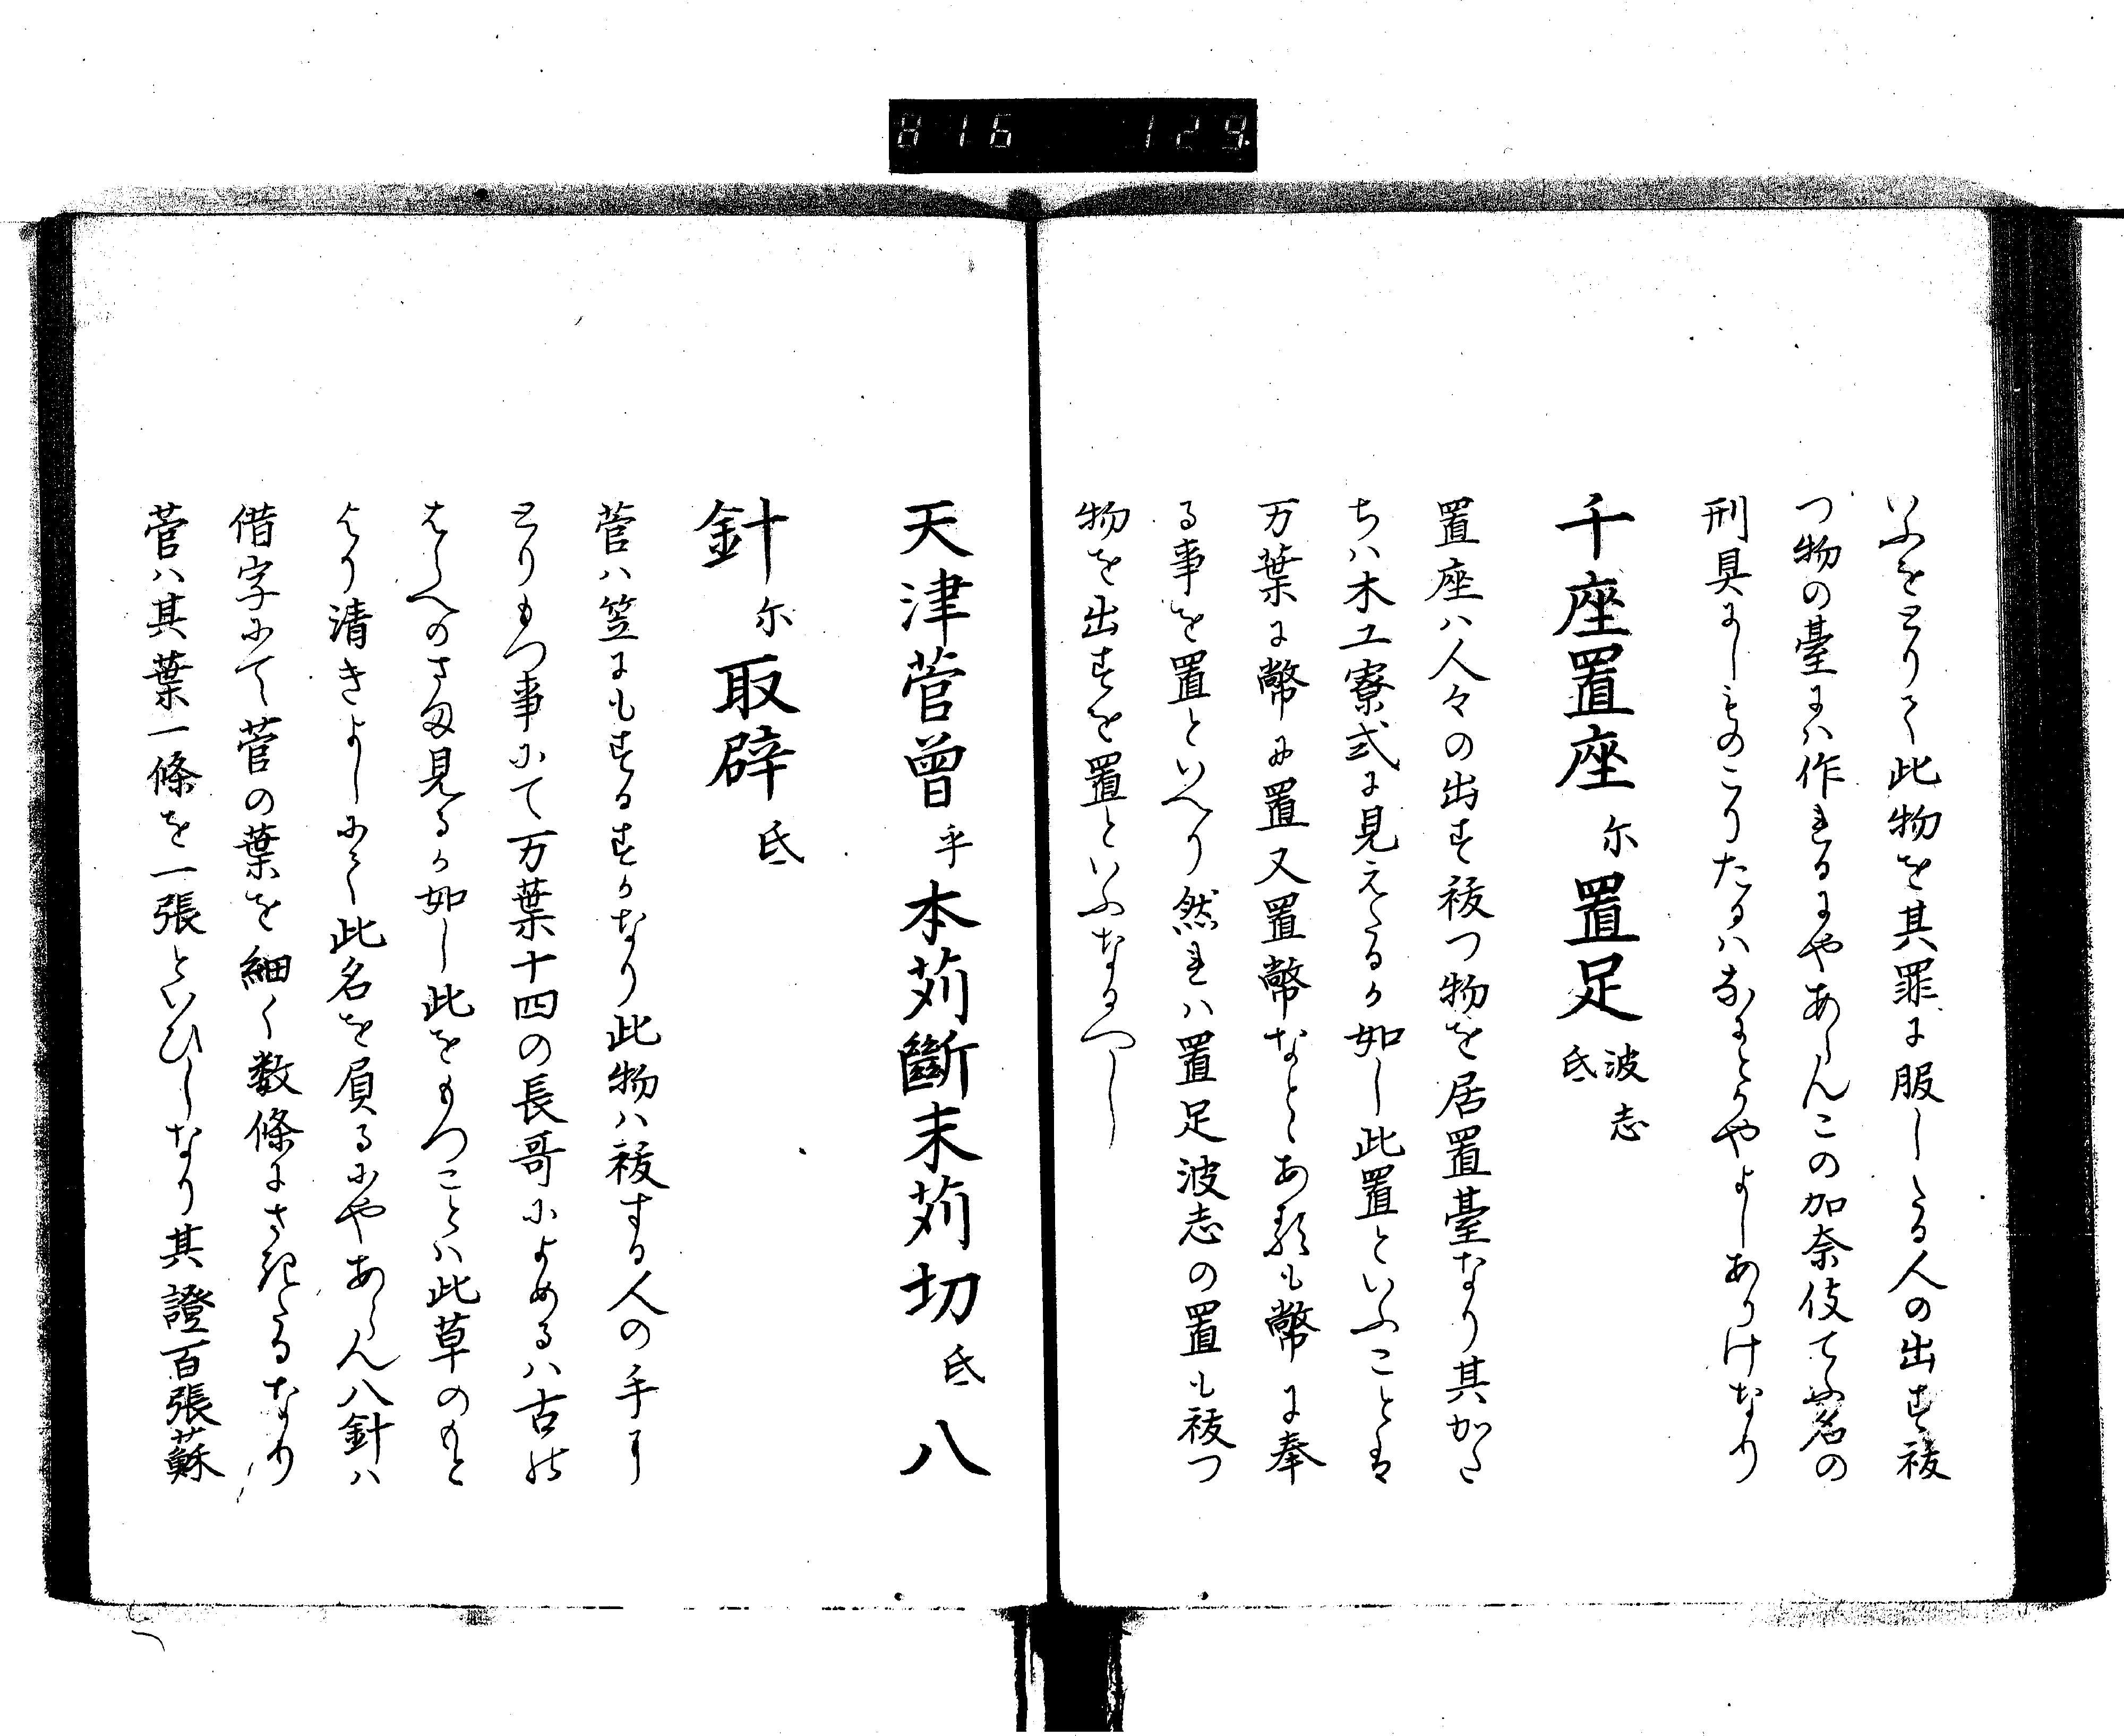 816 129
いふをとりて此物を其罪に服したる人の出す祓
つ物の臺には作れるにやあらんこの加奈伎てふ名の
刑具にしものこりたるはなにとかやよしありけなり
千座置座尓置足波志氐
置座ハ人々の出す祓つ物を居置臺なり其かた
ちハ木工寮式に見えたるか如し此置といふことは
万葉に幣に置又置幣なとあるも幣に奉
る事を置といへり然れハ置足波志の置も祓つ
物を出すを置といふなるへし
天津菅曽乎本苅斷末苅切氐八
針尓取辟氐
菅ハ笠にもするすかなり此物ハ祓する人の手に
とりもつ事にて万葉十四の長哥によめるハ古の
はらへのさま見るか如し此をもつことハ此草のもと
より清きよしにて此名を負るにやあらん八針ハ
借字にて菅の葉を細く数條にさきたるなり
菅ハ其葉一條を一張といひしなり其證百張蘇